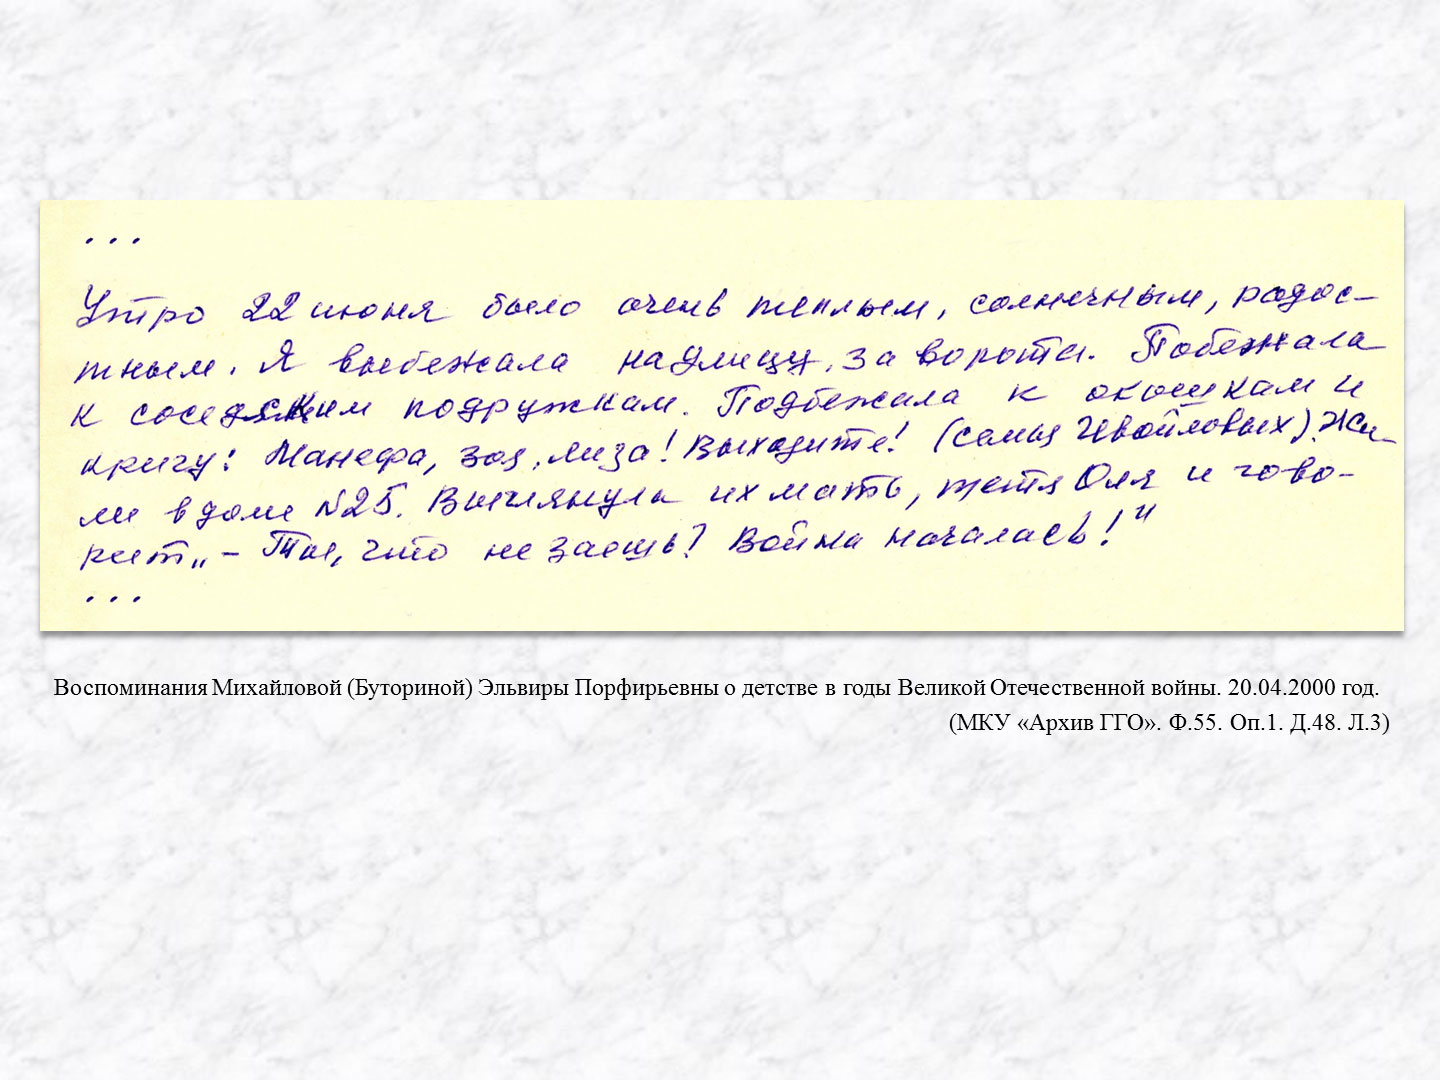 ...
Утро 22 июня было очень теплым, солнечным, радос-
тным. Я выбежала на улицу, за ворота. Побежала
к соседским подружкам. Подбежала к окошкам и
кричу: Манефа, Зоя, Лиза! Выходите! (семья Ивойловых). Жи-
ли в доме №25. Выглянула их мать, тетя Оля и гово-
рит„ – Ты, что не заешь? Война началась!"
...
Воспоминания Михайловой (Буториной) Эльвиры Порфирьевны о детстве в годы Великой Отечественной войны. 20.04.2000 год.
(МКУ «Архив ГГО». Ф.55. Оп.1. Д.48. Л.3)